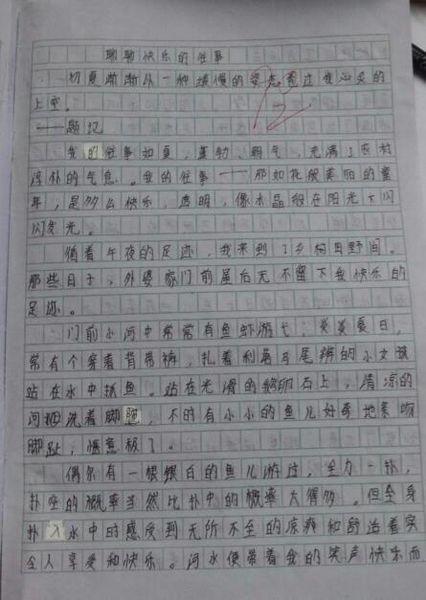 聊聊快乐的往事
切夏渐渐从一种缓慢的姿态飘过我心灵的
上空。
——题记
我的往事如夏,蓬勃、朝气,充满了农村
淳朴的气息。我的往事——那如花般美丽的童
年,是多么快乐,透明,像水晶般在阳光下闪
闪发光。
循着午夜的足迹,我来到了乡村田野间。
那些日子,外婆家门前屋后无不留下我快乐的
足迹。
门前小河中常常有鱼虾游弋;炎炎夏日,
常有个穿着背带裤,扎着利落马尾辫的小女孩
站在水中抓鱼。站在光滑的鹅卵石上,清凉的
河洗着脚,不时有小小的鱼儿好奇地来吻
脚趾,惬意极了。
偶尔有一银银白的鱼儿游过,全力一扑,
扑空的概率当然比扑中的概率大得多。但全身
扑入水中时感受到无所不至的凉爽和舒适着实
令人享受和快乐。河水便带着我的笑声快乐而